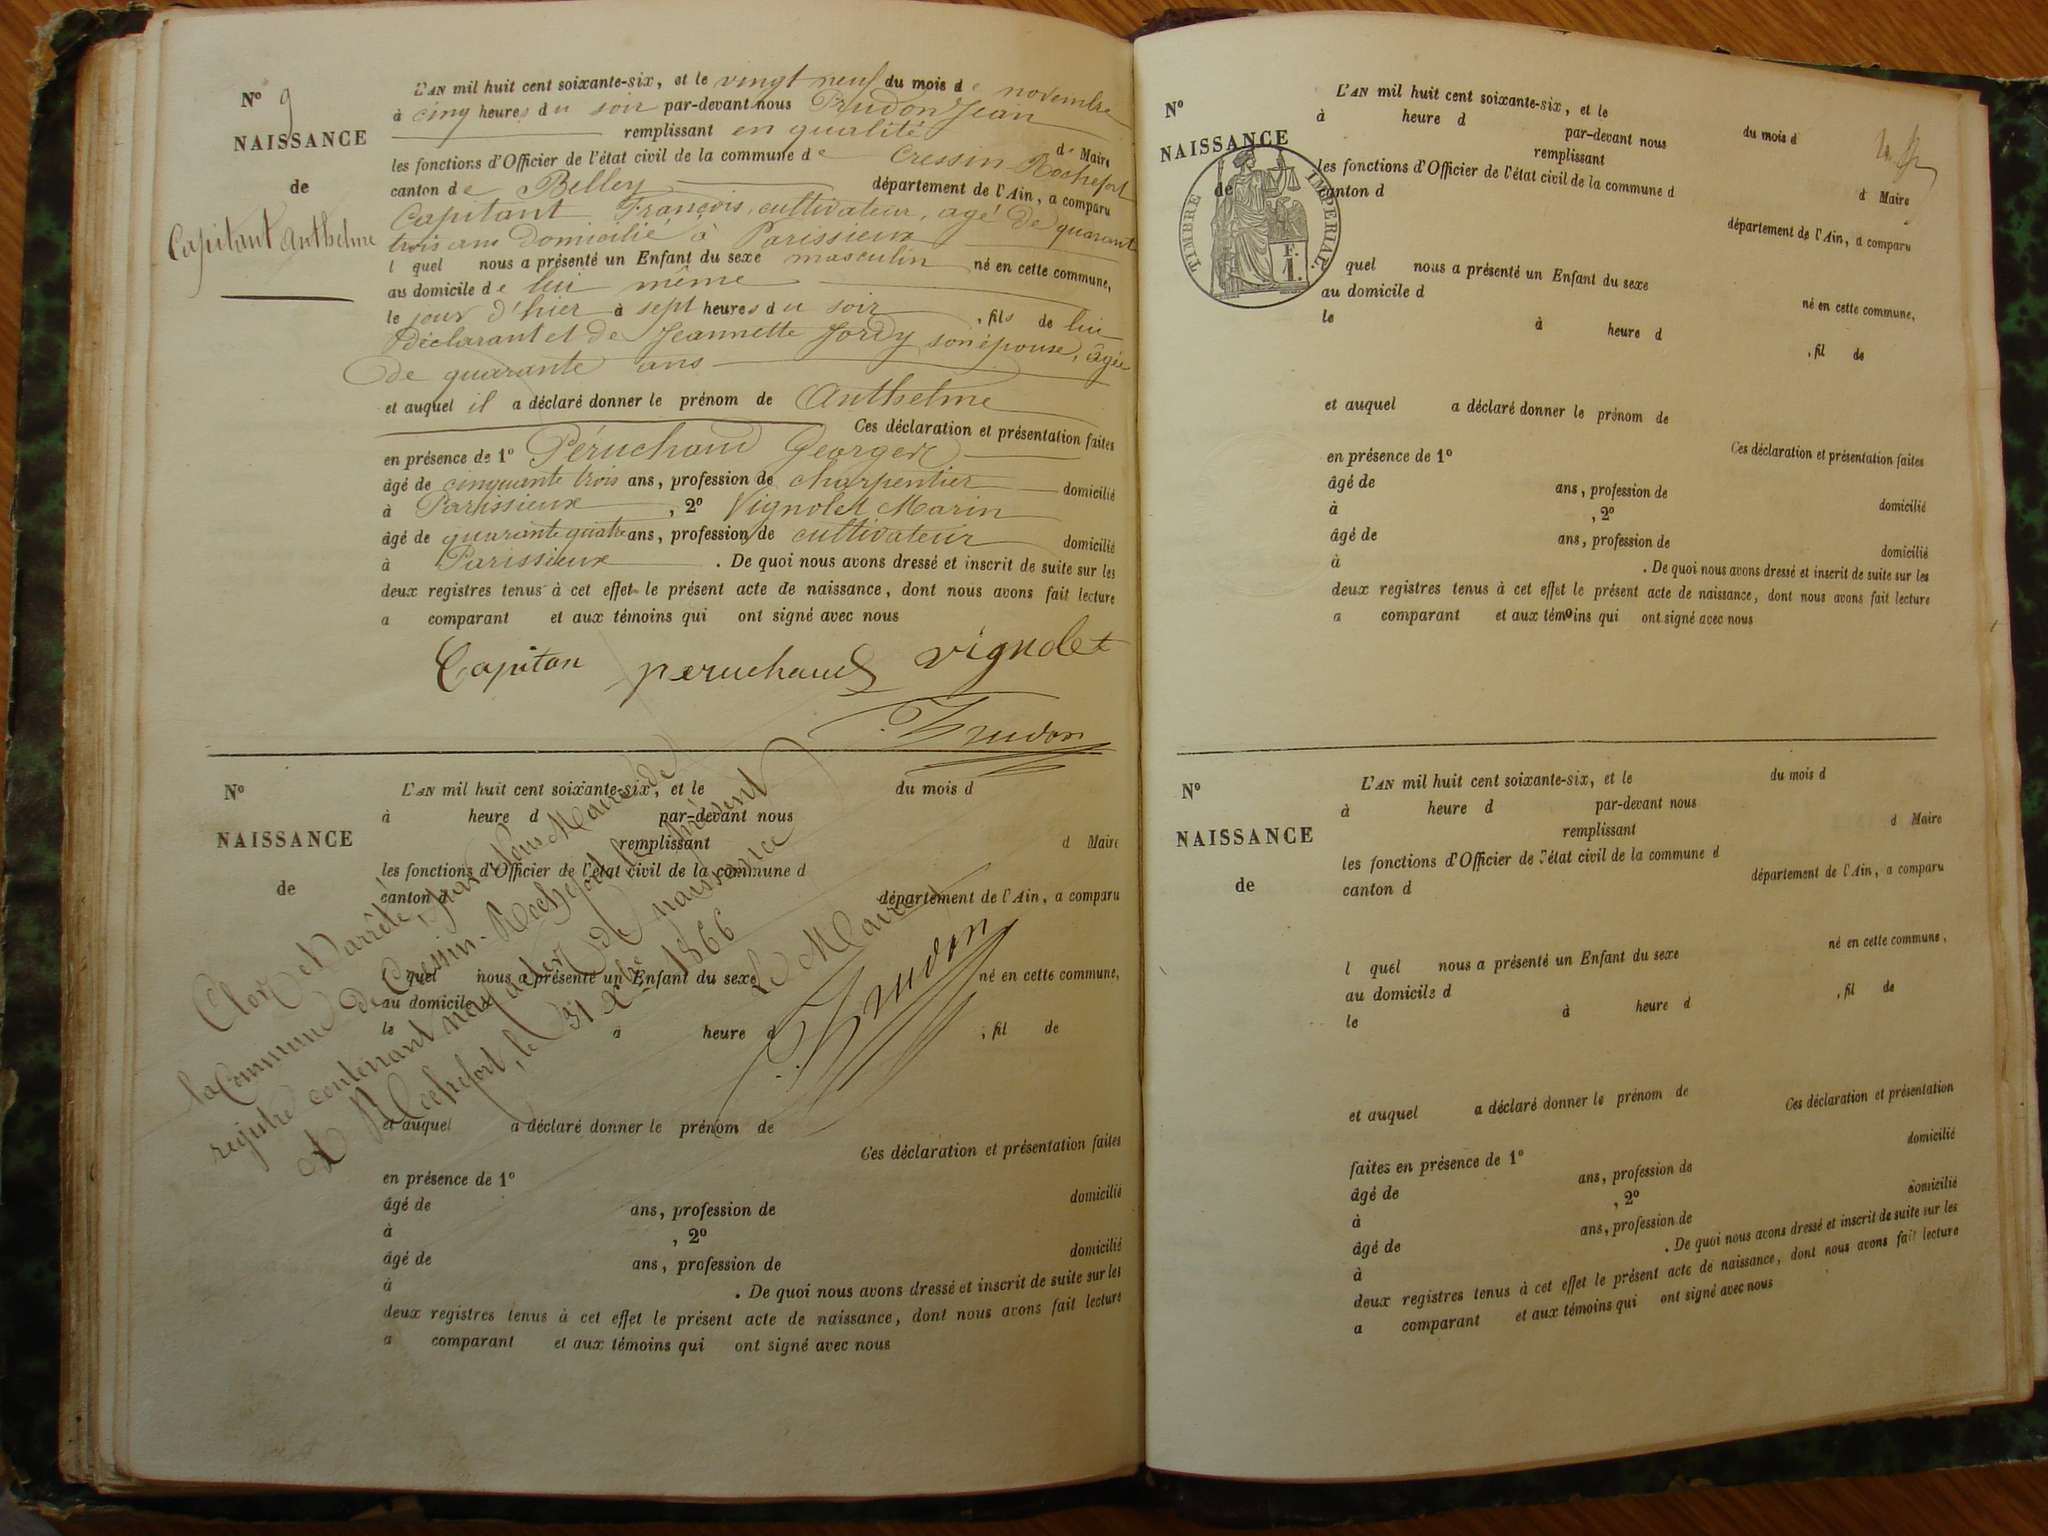 N° 9
NAISSANCE
de
Capitant Anthelme
L'AN mil huit cent soixante-six, et le vingt neuf du mois de novembre
à cinq heures du soir par-devant nous Prudon Jean
remplissant en qualité de Maire
les fonctions d'Officier de l'état civil de la commune de Cressin Rochefort
canton de Belley département de l'Ain, a comparu
Capitant François, cultivateur, agé de quarant
trois ans Domicilié à Parissieux
l quel nous a présenté un Enfant du sexe masculin né en cette commune,
au domicile de lui même
le jour d'hier à sept heures du soir, fils de lui
Déclarant et de Jeannette Jordy son épouse, âgée
de quarante ans
et auquel il a déclaré donner le prénom de Anthelme
Ces déclaration et présentation faites
en présence de 1° Péruchaud Georges
âgé de cinquante trois ans, profession de charpentier domicilié
à Parissieux, 2° Vignolet Marin
âgé de quarante quatre ans, profession de cultivateur domicilié
à Parissieux. De quoi nous avons dressé et inscrit de suite sur les
deux registres tenus à cet effet le présent acte de naissance, dont nous avons fait lecture
a comparant et aux témoins qui ont signé avec nous
Capitan peruchaud vignolet
Prudon
N°
NAISSANCE
de
L'AN mil huit cent soixante-six, et le du mois d
à heure d par-devant nous
remplissant d Maire
les fonctions d'Officier de l'état civil de la commune d
canton d département de l'Ain, a comparu
l quel nous a présenté un Enfant du sexe né en cette commune,
au domicile d
le à heure d , fil de
et auquel a déclaré donner le prénom de
Ces déclaration et présentation faites
en présence de 1°
âgé de ans, profession de domicilié
à , 2°
âgé de ans, profession de domicilié
à . De quoi nous avons dressé et inscrit de suite sur les
deux registres tenus à cet effet le présent acte de naissance, dont nous avons fait lecture
a comparant et aux témoins qui ont signé avec nous
Clos et arrêté, par Nous Maire de
la Commune de Cressin-Rochefort le présent
registre contenant neuf actes de naissance
A Rochefort, le 31 Xbre 1866
Le Maire
Prudon
N°
NAISSANCE
de
TIMBRE IMPERIAL.
F.
1.
L'AN mil huit cent soixante-six, et le du mois d
à heure d par-devant nous
remplissant d Maire
les fonctions d'Officier de l'état civil de la commune d
canton d département de l'Ain, a comparu
l quel nous a présenté un Enfant du sexe né en cette commune,
au domicile d
le à heure d , fil de
et auquel a déclaré donner le prénom de
Ces déclaration et présentation faites
en présence de 1°
âgé de ans, profession de domicilié
à , 2°
âgé de ans, profession de domicilié
à . De quoi nous avons dressé et inscrit de suite sur les
deux registres tenus à cet effet le présent acte de naissance, dont nous avons fait lecture
a comparant et aux témoins qui ont signé avec nous
N°
NAISSANCE
de
L'AN mil huit cent soixante-six, et le du mois d
à heure d par-devant nous
remplissant d Maire
les fonctions d'Officier de l'état civil de la commune d
canton d département de l'Ain, a comparu
l quel nous a présenté un Enfant du sexe né en cette commune,
au domicile d
le à heure d , fil de
et auquel a déclaré donner le prénom de
Ces déclaration et présentation
faites en présence de 1°
âgé de ans, profession de domicilié
à , 2°
âgé de ans, profession de domicilié
à . De quoi nous avons dressé et inscrit de suite sur les
deux registres tenus à cet effet le présent acte de naissance, dont nous avons fait lecture
a comparant et aux témoins qui ont signé avec nous